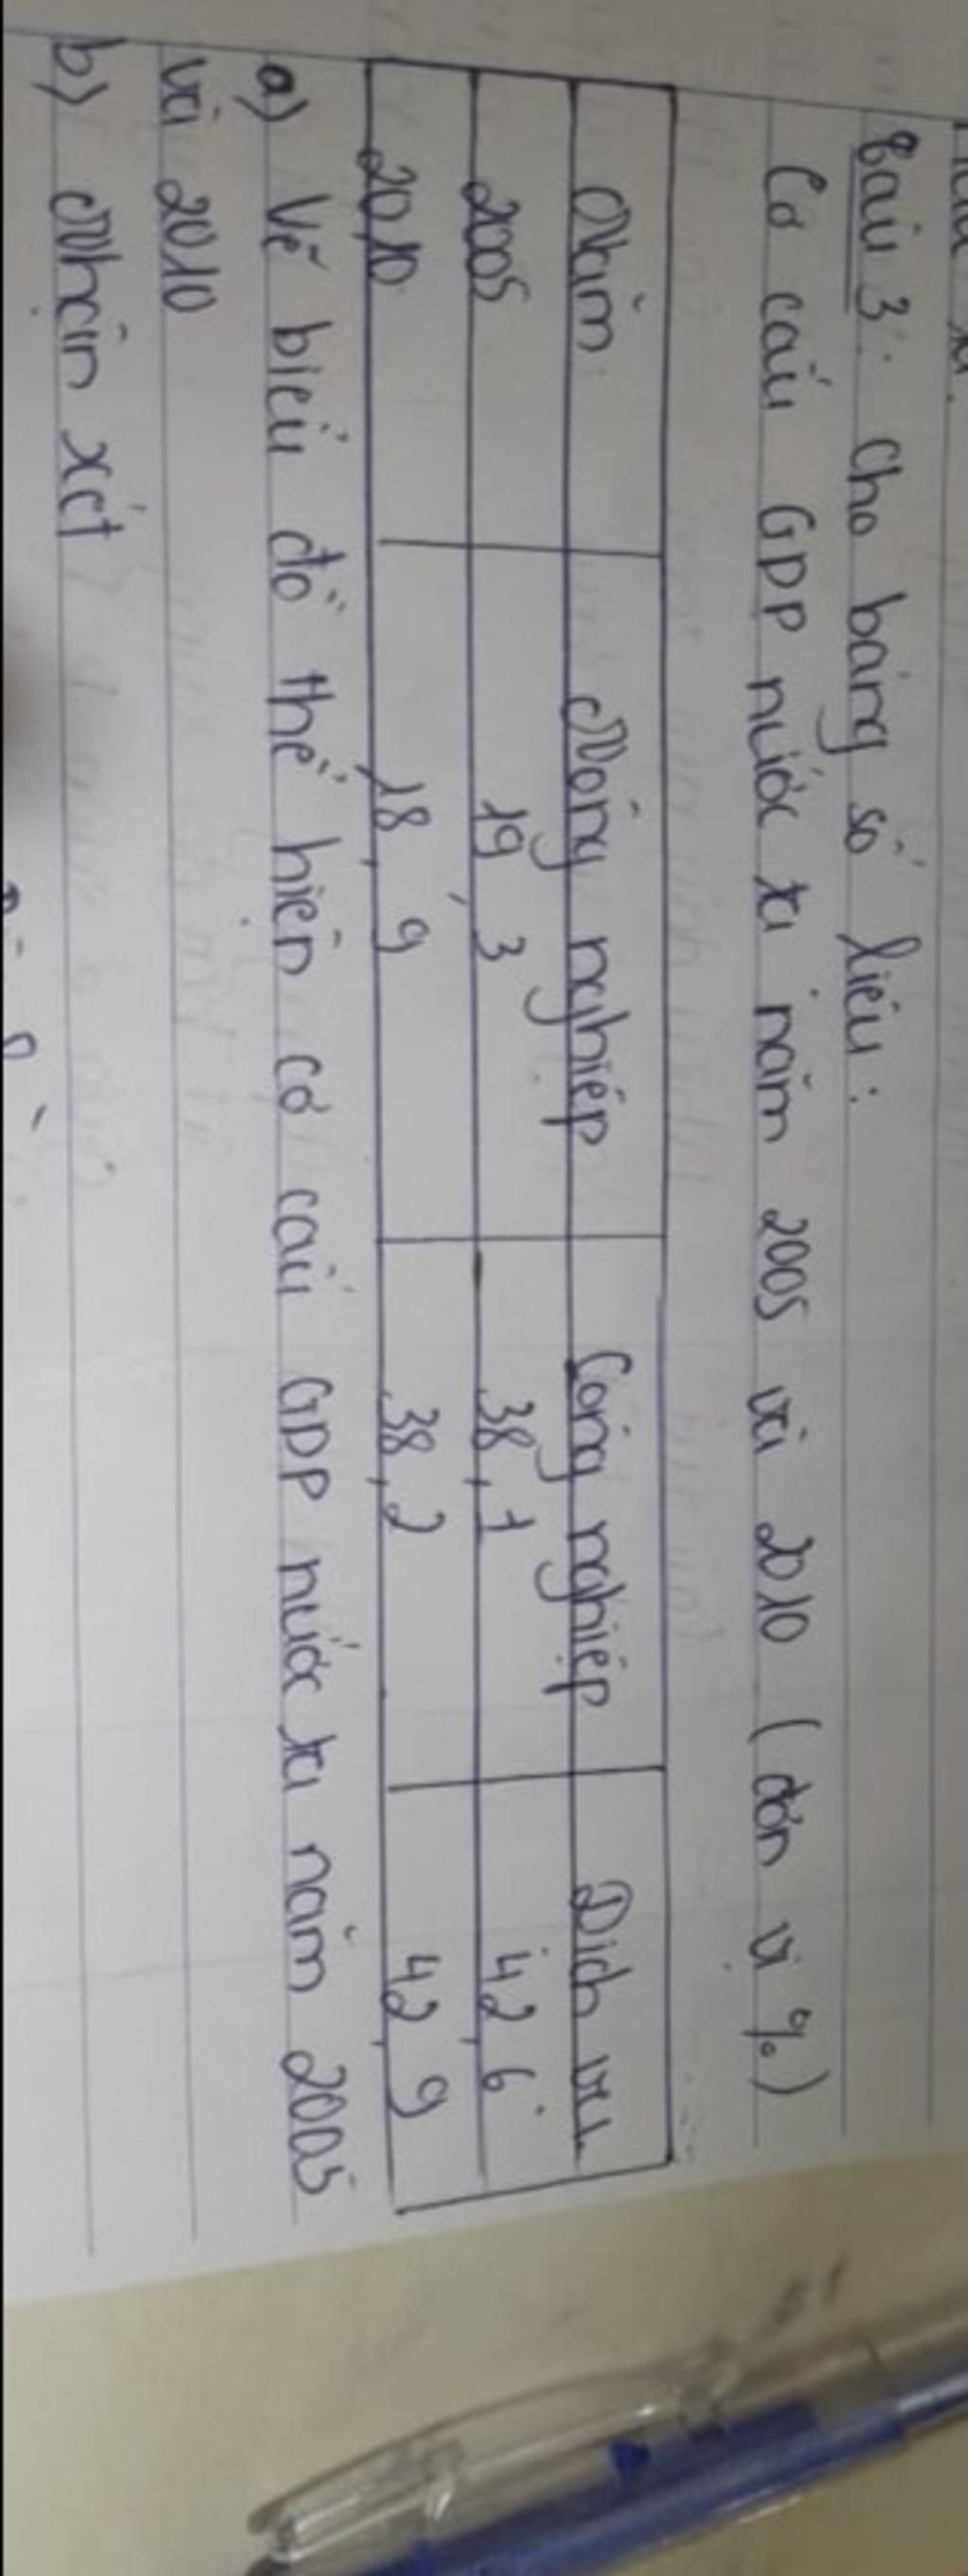 Bài 3: Cho bảng số liệu:
Cơ cấu GDP nước ta năm 2005 và 2010 (đơn vị %)
Năm Nông nghiệp Công nghiệp Dịch vụ
2005 19,3 38,1 42,6
2010 18,9 38,2 42,9
a) Vẽ biểu đồ thể hiện cơ cấu GDP nước ta năm 2005
và 2010
b) Nhận xét